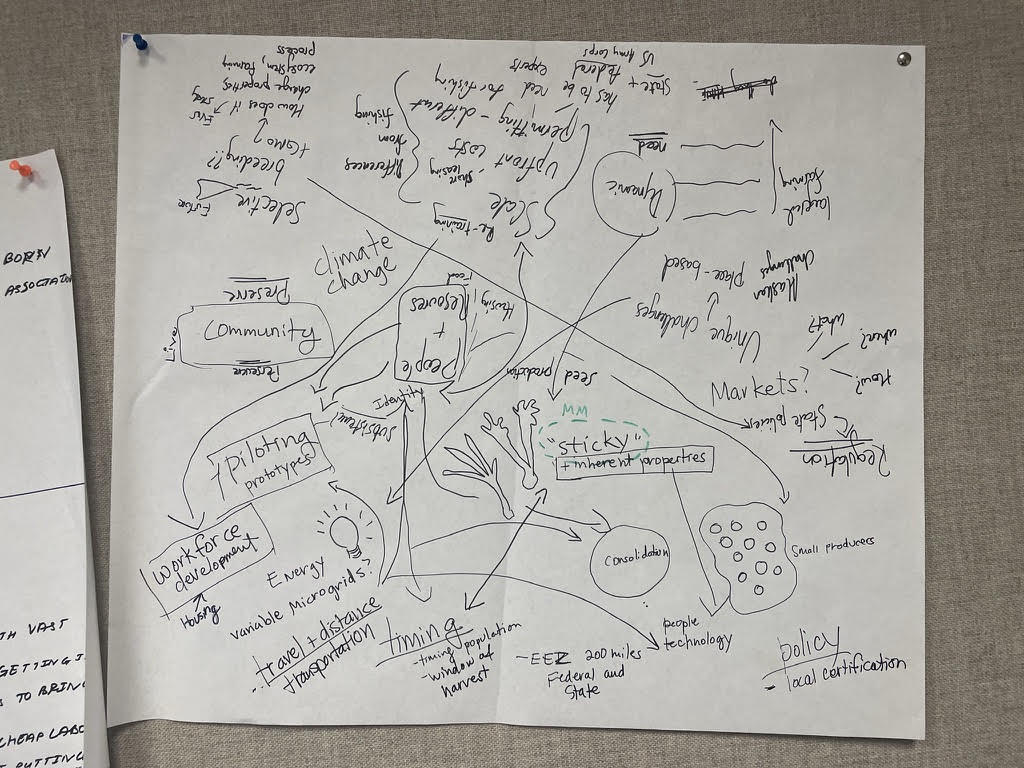 BOREN
ASSOCIATION
TH VAST
GETTING I
S TO BRING
CHEAP LABO
PUTTING
process
ecosystem, farming
change properties,
How does it
EVOS → seq
+ GMO?
breeding!?
Selective
FUTURE
Differences
from
fishing
Re-training
Scale
- share
leasing
Upfront costs
Permitting - different
has to be need for fishing
experts
State + federal
US Army Corps
need
Dynamic
layered
farming
Alaskan
challenges
Place-based
Unique challenges
climate
change
Preserve
Community
Preserve
Living
Housing, Food
People
+
Resources
Identity
Subsistence
seed
production
Markets?
what?
when?
How?
State policies
Regulation
MM
"sticky"
+ inherent properties
piloting
prototypes
Workforce
development
Housing
Energy
variable Microgrids?
travel + distance
transportation
timing
- timing population
- window of
harvest
Consolidation
Small producers
people
technology
- EEZ 200 miles
Federal and
State
policy
- local certification